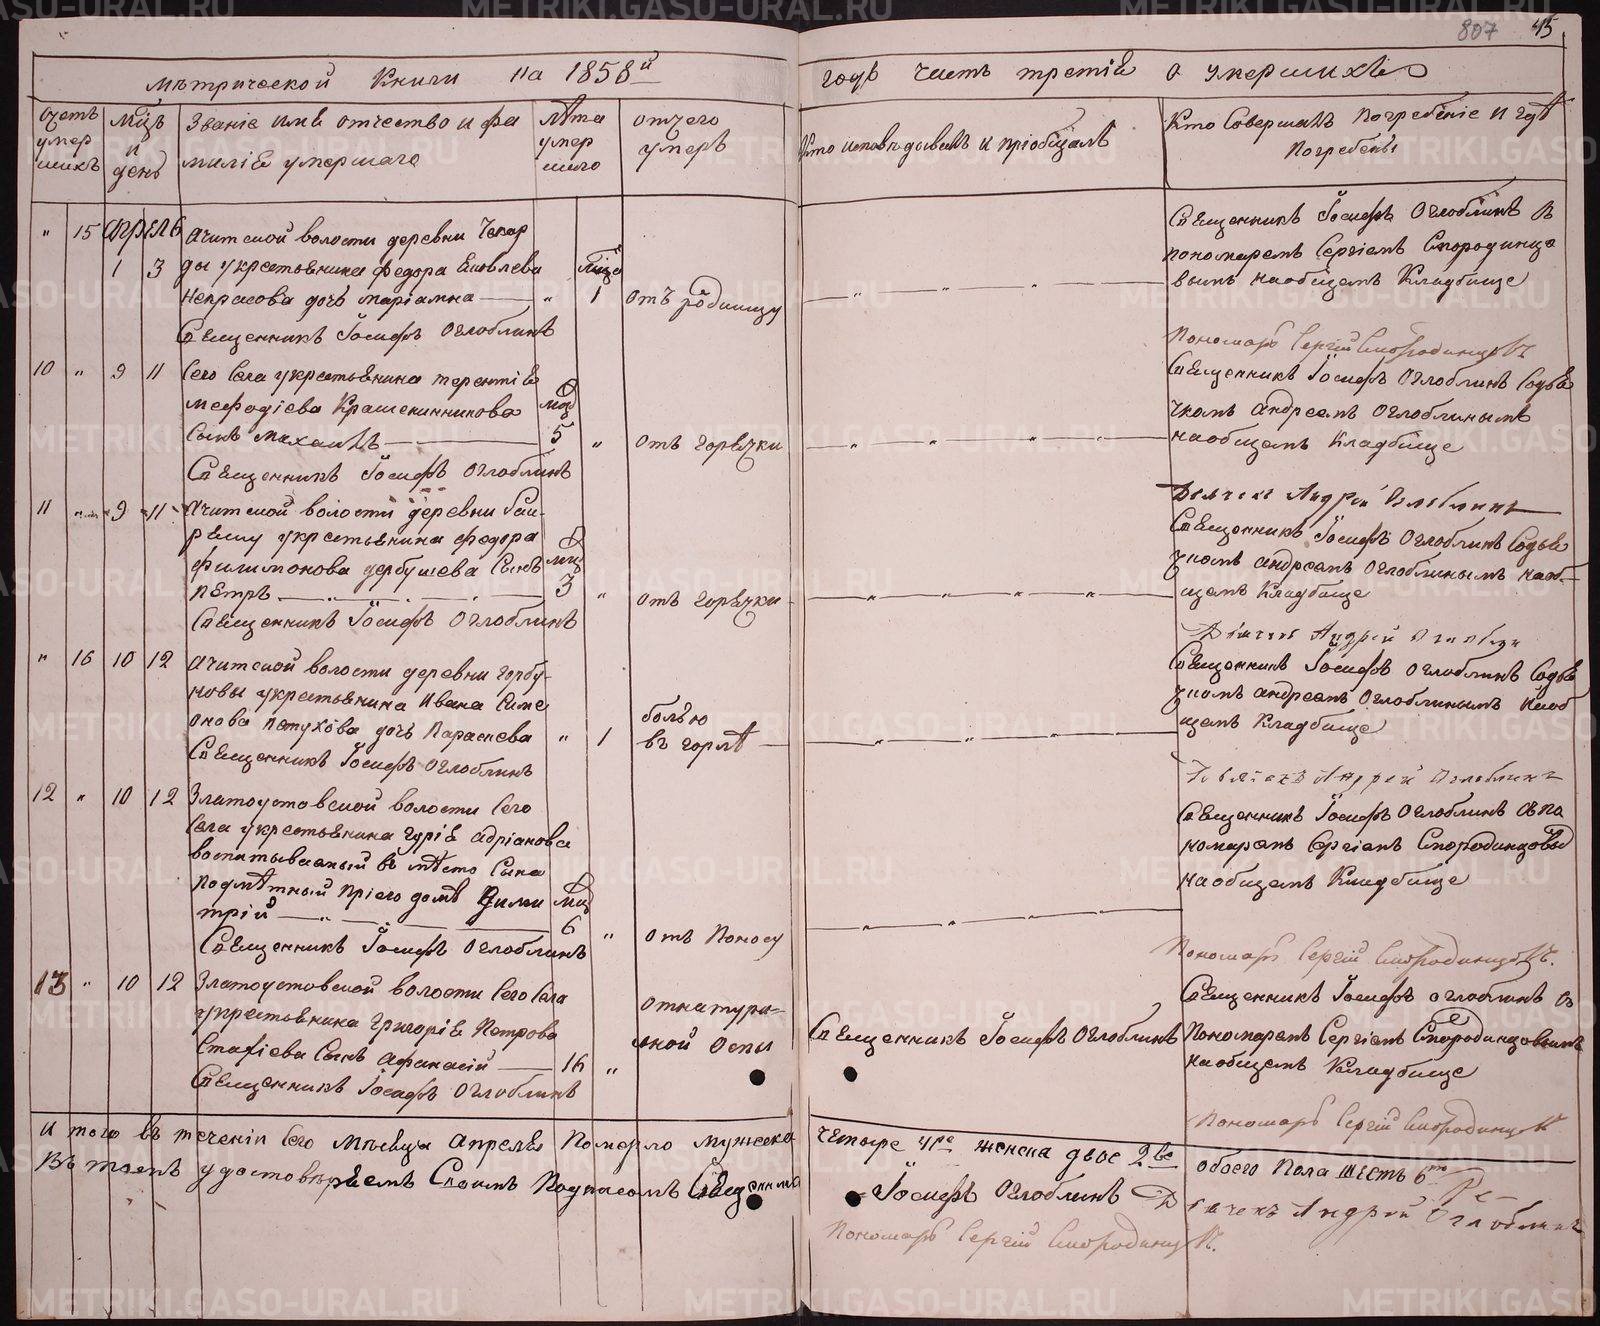 807 45
Мѣтрической Книги на 1858й
годъ часть третіѣ о умершихъ
Счетъ умер шихъ
Мцъ и день
Званіе имѣ отчество и фа
миліѣ умершаго
Лѣта умер шего
отчего умеръ
Кто исповѣдывалъ и пріобщалъ
Кто Совершалъ Погребеніе и гдѣ
Погребены
" 15 Апрель
1 3
Ачитской волости деревни Чекар
ды у крестьянина Федора Яковлева
Некрасова дочь Маріамна — " 1 отъ родимцу
Священникъ Іосифъ Оглоблинъ
Священникъ Іосифъ Оглоблинъ съ
пономаремъ Сергіемъ Смородинцо
вымъ на общемъ Кладбище
Пономарь Сергій Смородинцовъ
10 " 9 11 Сего Села у крестьянина терентіѣ
мефодіева Крашенинникова мцъ
Сынъ михаилъ — 5 " отъ горячки
Священникъ Іосифъ Оглоблинъ
Священникъ Іосифъ Оглоблинъ Содья
чкомъ андреемъ Оглоблинымъ
на общемъ Кладбище
Дьячекъ Андрей Оглоблинъ
11 " 9 11 Ачитской волости деревни
у крестьянина федора
филимонова дербушева Сынъ мцъ
Петръ — 3 " отъ горячки
Священникъ Іосифъ Оглоблинъ
Священникъ Іосифъ Оглоблинъ Содья
чкомъ андреемъ Оглоблинымъ на об
щемъ Кладбище
Дьячекъ Андрей Оглоблин
" 16 10 12 Ачитской волости деревни горбу
новы у крестьянина Ивана Симе
онова петухова дочь Параскева " 1 болью въ горлѣ
Священникъ Іосифъ Оглоблинъ
Священникъ Іосифъ Оглоблинъ Содья
чкомъ андреемъ Оглоблинымъ На об
щемъ Кладбище
Дьячекъ Андрей Оглоблинъ
12 " 10 12 Златоустовской волости Сего
Села у крестьянина гуріѣ адріанова
воспитываемый въ мѣсто Сына
подмѣтный при его домѣ Дими мцъ
трій — 6 " отъ Поносу
Священникъ Іосифъ Оглоблинъ
Священникъ Іосифъ Оглоблинъ съ по
номаремъ Сергіемъ Смородинцовы
на общемъ Кладбище
Пономарь Сергій Смородинцовъ.
13 " 10 12 Златоустовской волости Сего Села
у крестьянина Григоріѣ Петрова
Стахіева Сынъ Афанасій — 16 " от натура
лной Оспы
Священникъ Іосифъ Оглоблинъ
Священникъ Іосифъ Оглоблинъ
Священникъ Іосифъ Оглоблинъ съ
Пономаремъ Сергіемъ Смородинцовымъ
на общемъ Кладбище
Пономарь Сергій Смородинцовъ
Итого въ теченіи Сего Месяца Апреля Померло мужска четыре 4ре женска двое 2ве обоего Пола шесть 6ть
Въ томъ удостовѣряемъ Своимъ Подписомъ Священникъ Іосифъ Оглоблинъ Дьячекъ Андрей Оглоблинъ
Пономарь Сергій Смородинцовъ.
METRIKI.GASO-URAL.RU